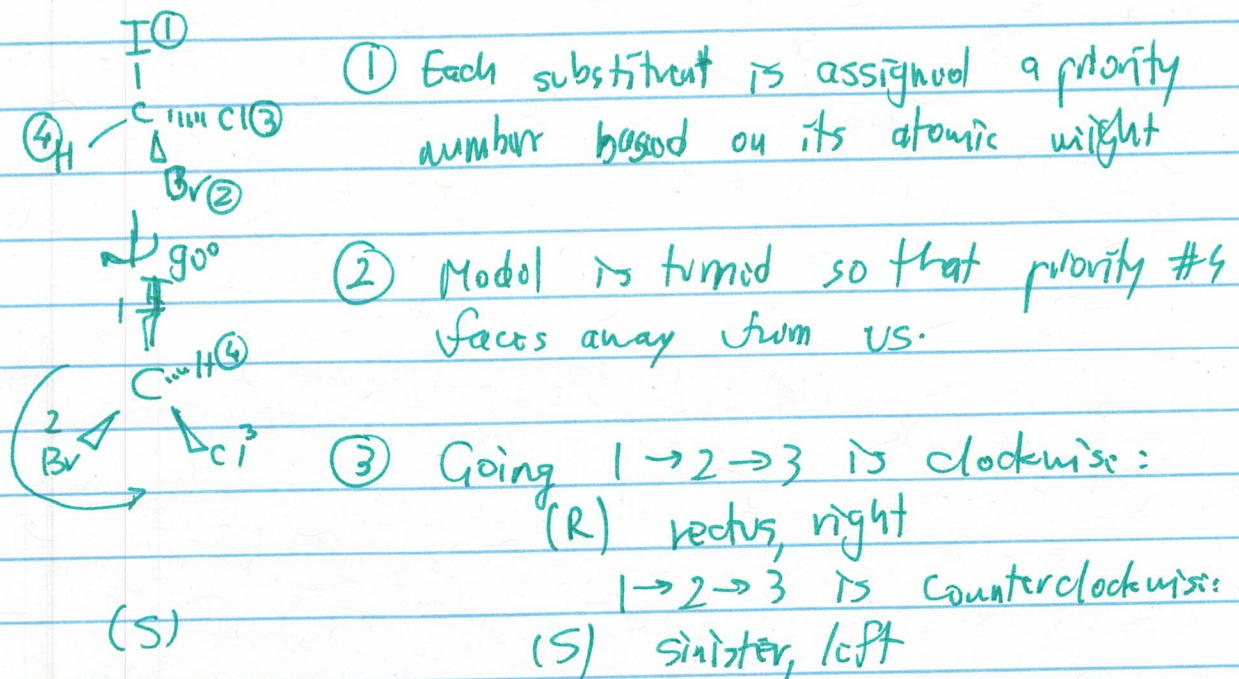 I ①
C ''''' Cl ③
④ H
Br ②
90°
1 I
C ''''' H ④
2
Br
Cl 3
(S)
① Each substituent is assigned a priority
number based on its atomic weight
② Model is turned so that priority #4
faces away from us.
③ Going 1 → 2 → 3 is clockwise:
(R) rectus, right
1 → 2 → 3 is counterclockwise:
(S) sinister, left